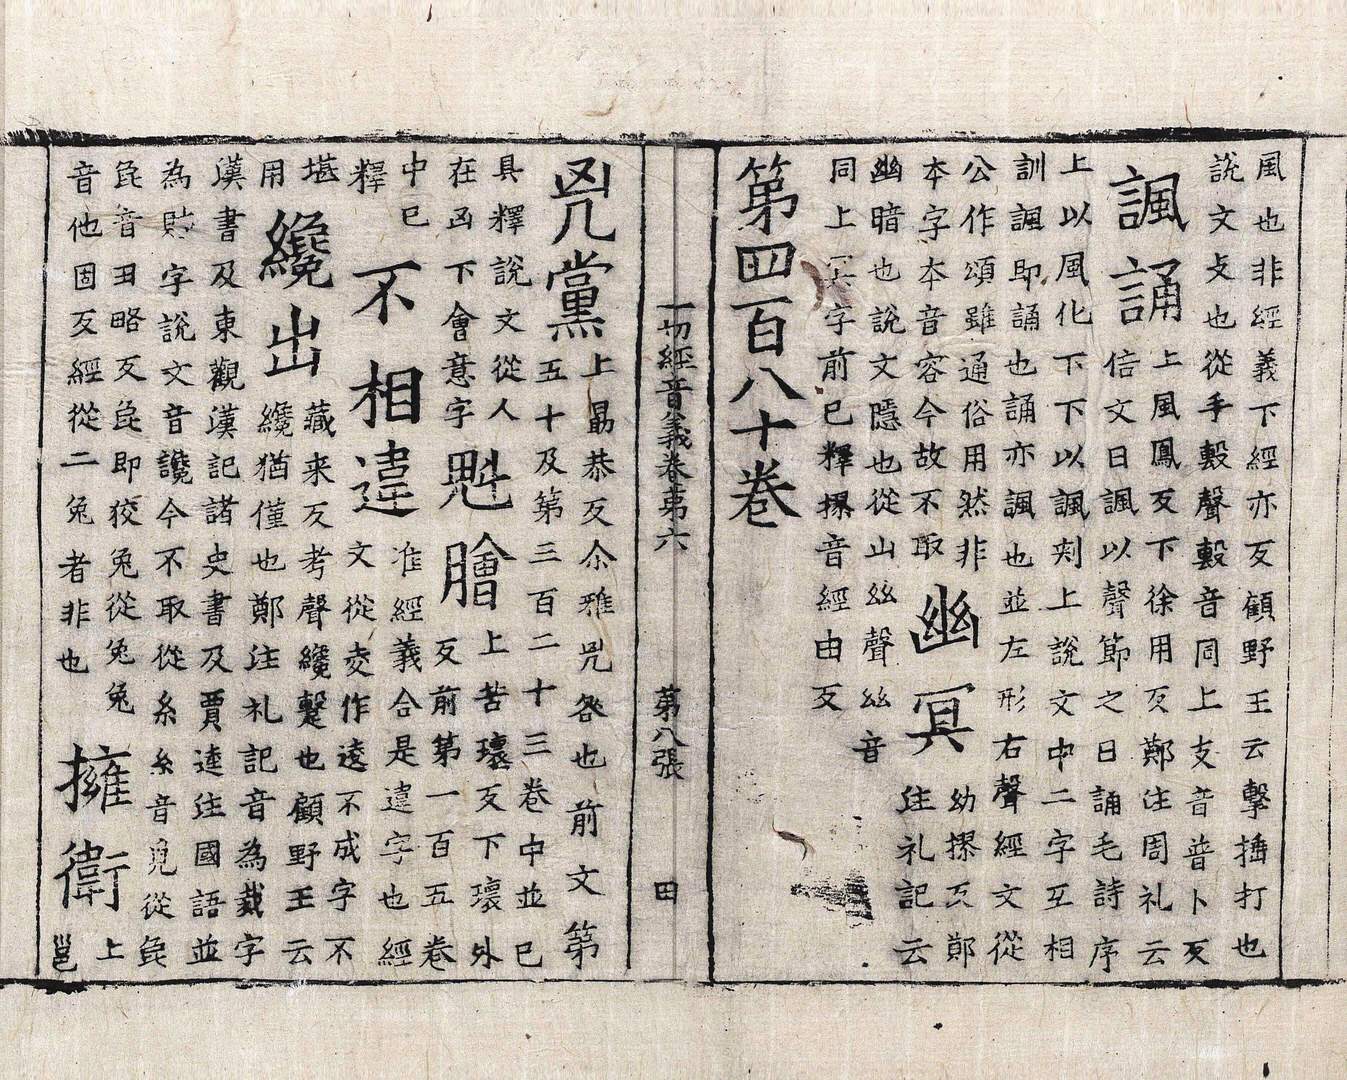 風也非經義下經亦反顧野王云擊捶打也
說文攴也從手毄聲毄音同上支音普卜反
諷誦上風鳳反下徐用反鄭注周礼云
信文曰諷以聲節之曰誦毛詩序
上以風化下下以諷刾上說文中二字互相
訓諷即誦也誦亦諷也並左形右聲經文從
公作頌雖通俗用然非
本字本音容今故不取
幽冥幼摞反鄭
注礼記云
幽暗也說文隱也從山𢆶聲𢆶音
同上冥字前已釋摞音經由反
第四百八十卷
一切經音義卷第六 第八張 田
兇黨上勗恭反尒雅兇咎也前文第
五十及第三百二十三卷中並已
具釋說文從人
在凶下會意字
魁膾上苦瓌反下瓌外
反前第一百五卷
中已
釋
不相違准經義合是違字也經
文從麦作逺不成字不
堪
用
纔出藏來反考聲纔蹔也顧野王云
纔猶僅也鄭注礼記音為裁字
漢書及東觀漢記諸史書及賈逵注國語並
為財字說文音讒今不取從糸糸音覓從㲋
㲋音丑略反㲋即狡兔從兔兔
音他固反經從二兔者非也
擁衛上
邕